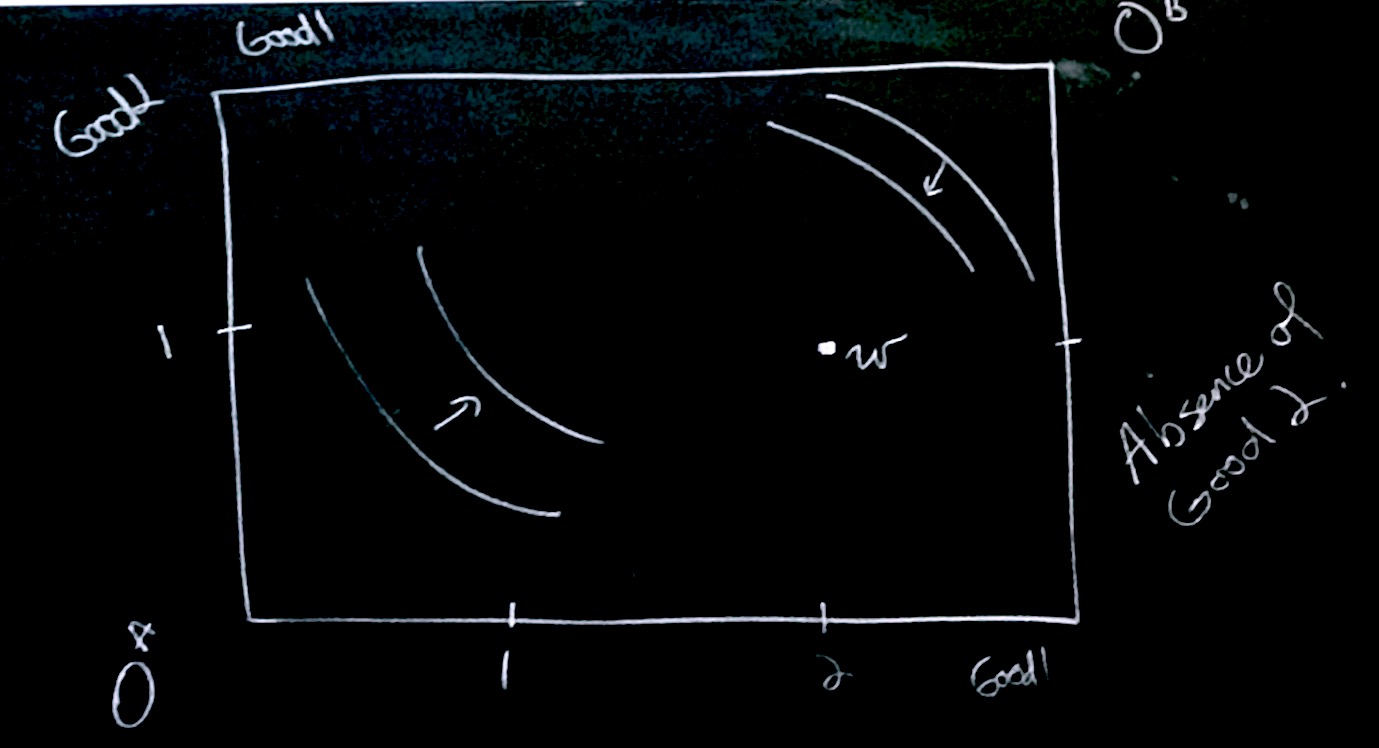 Good1
O^B
Good2
1
w
Absence of
Good 2.
1
2
Good1
O